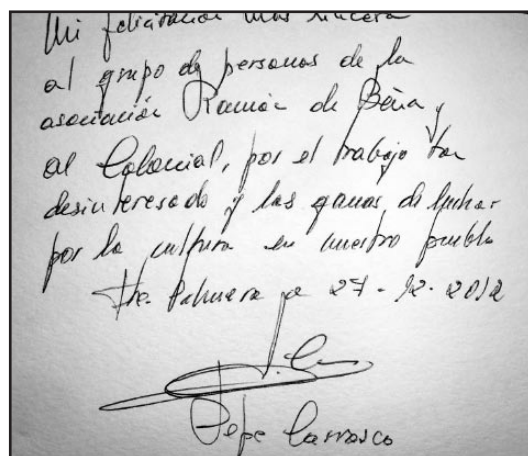 Mi felicitación más sincera
al grupo de personas de la
asociación Ramón de Beña y
al Colonial, por el trabajo tan
desinteresado y las ganas de luchar
por la cultura en nuestro pueblo
Fte. Palmera a 27-12-2012
Pepe Carrasco